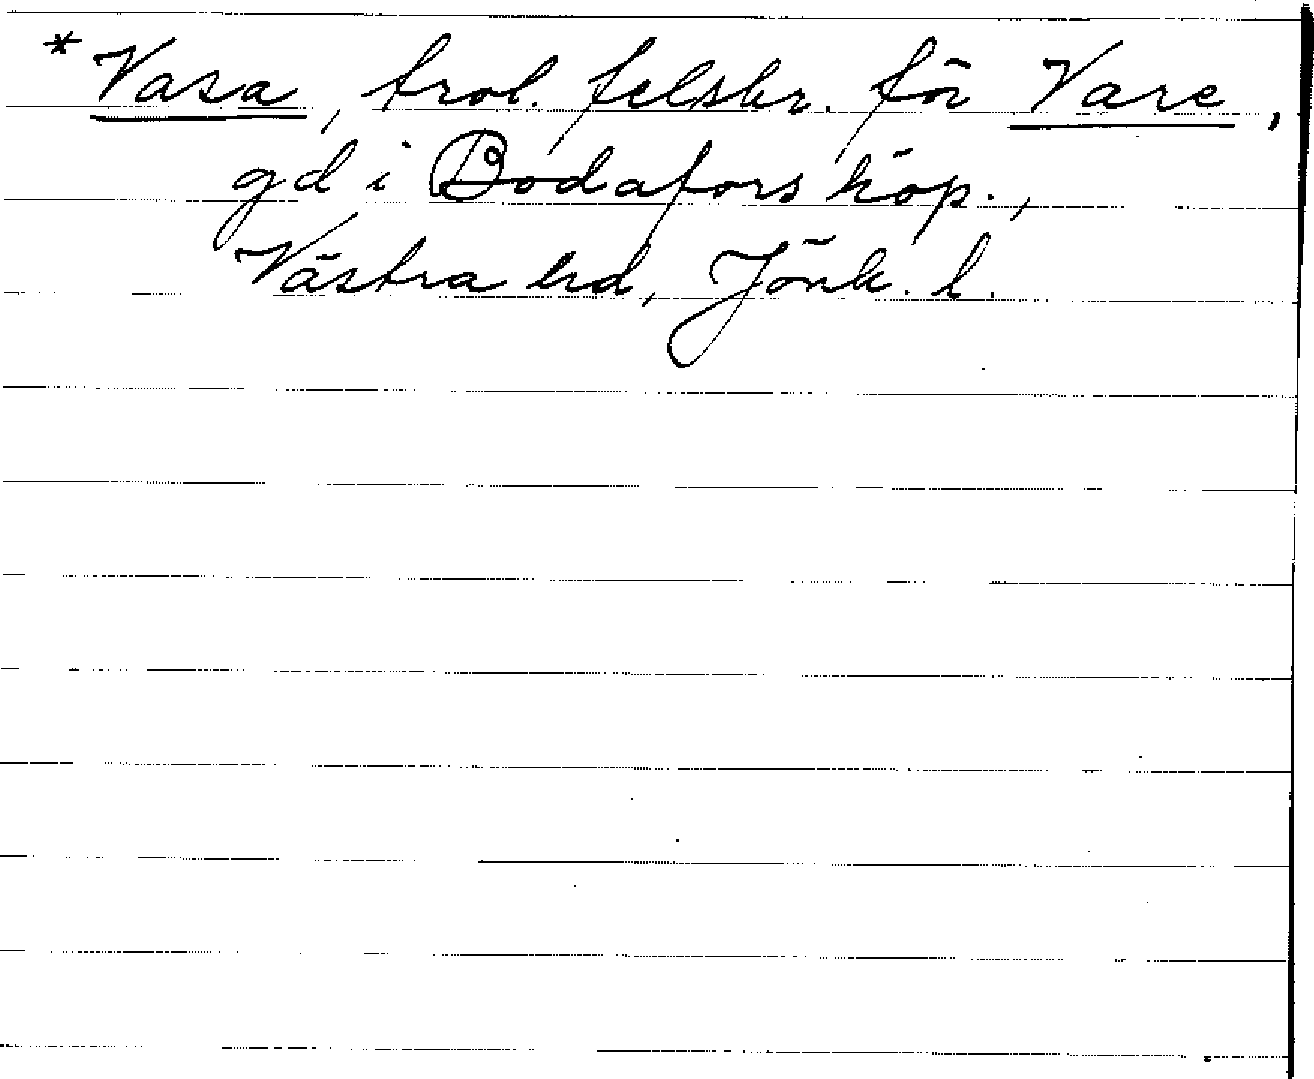 *Vasa, trol. felskr. för Vare,
gd i Bodafors köp.,
Västra hd, Jönk. l.